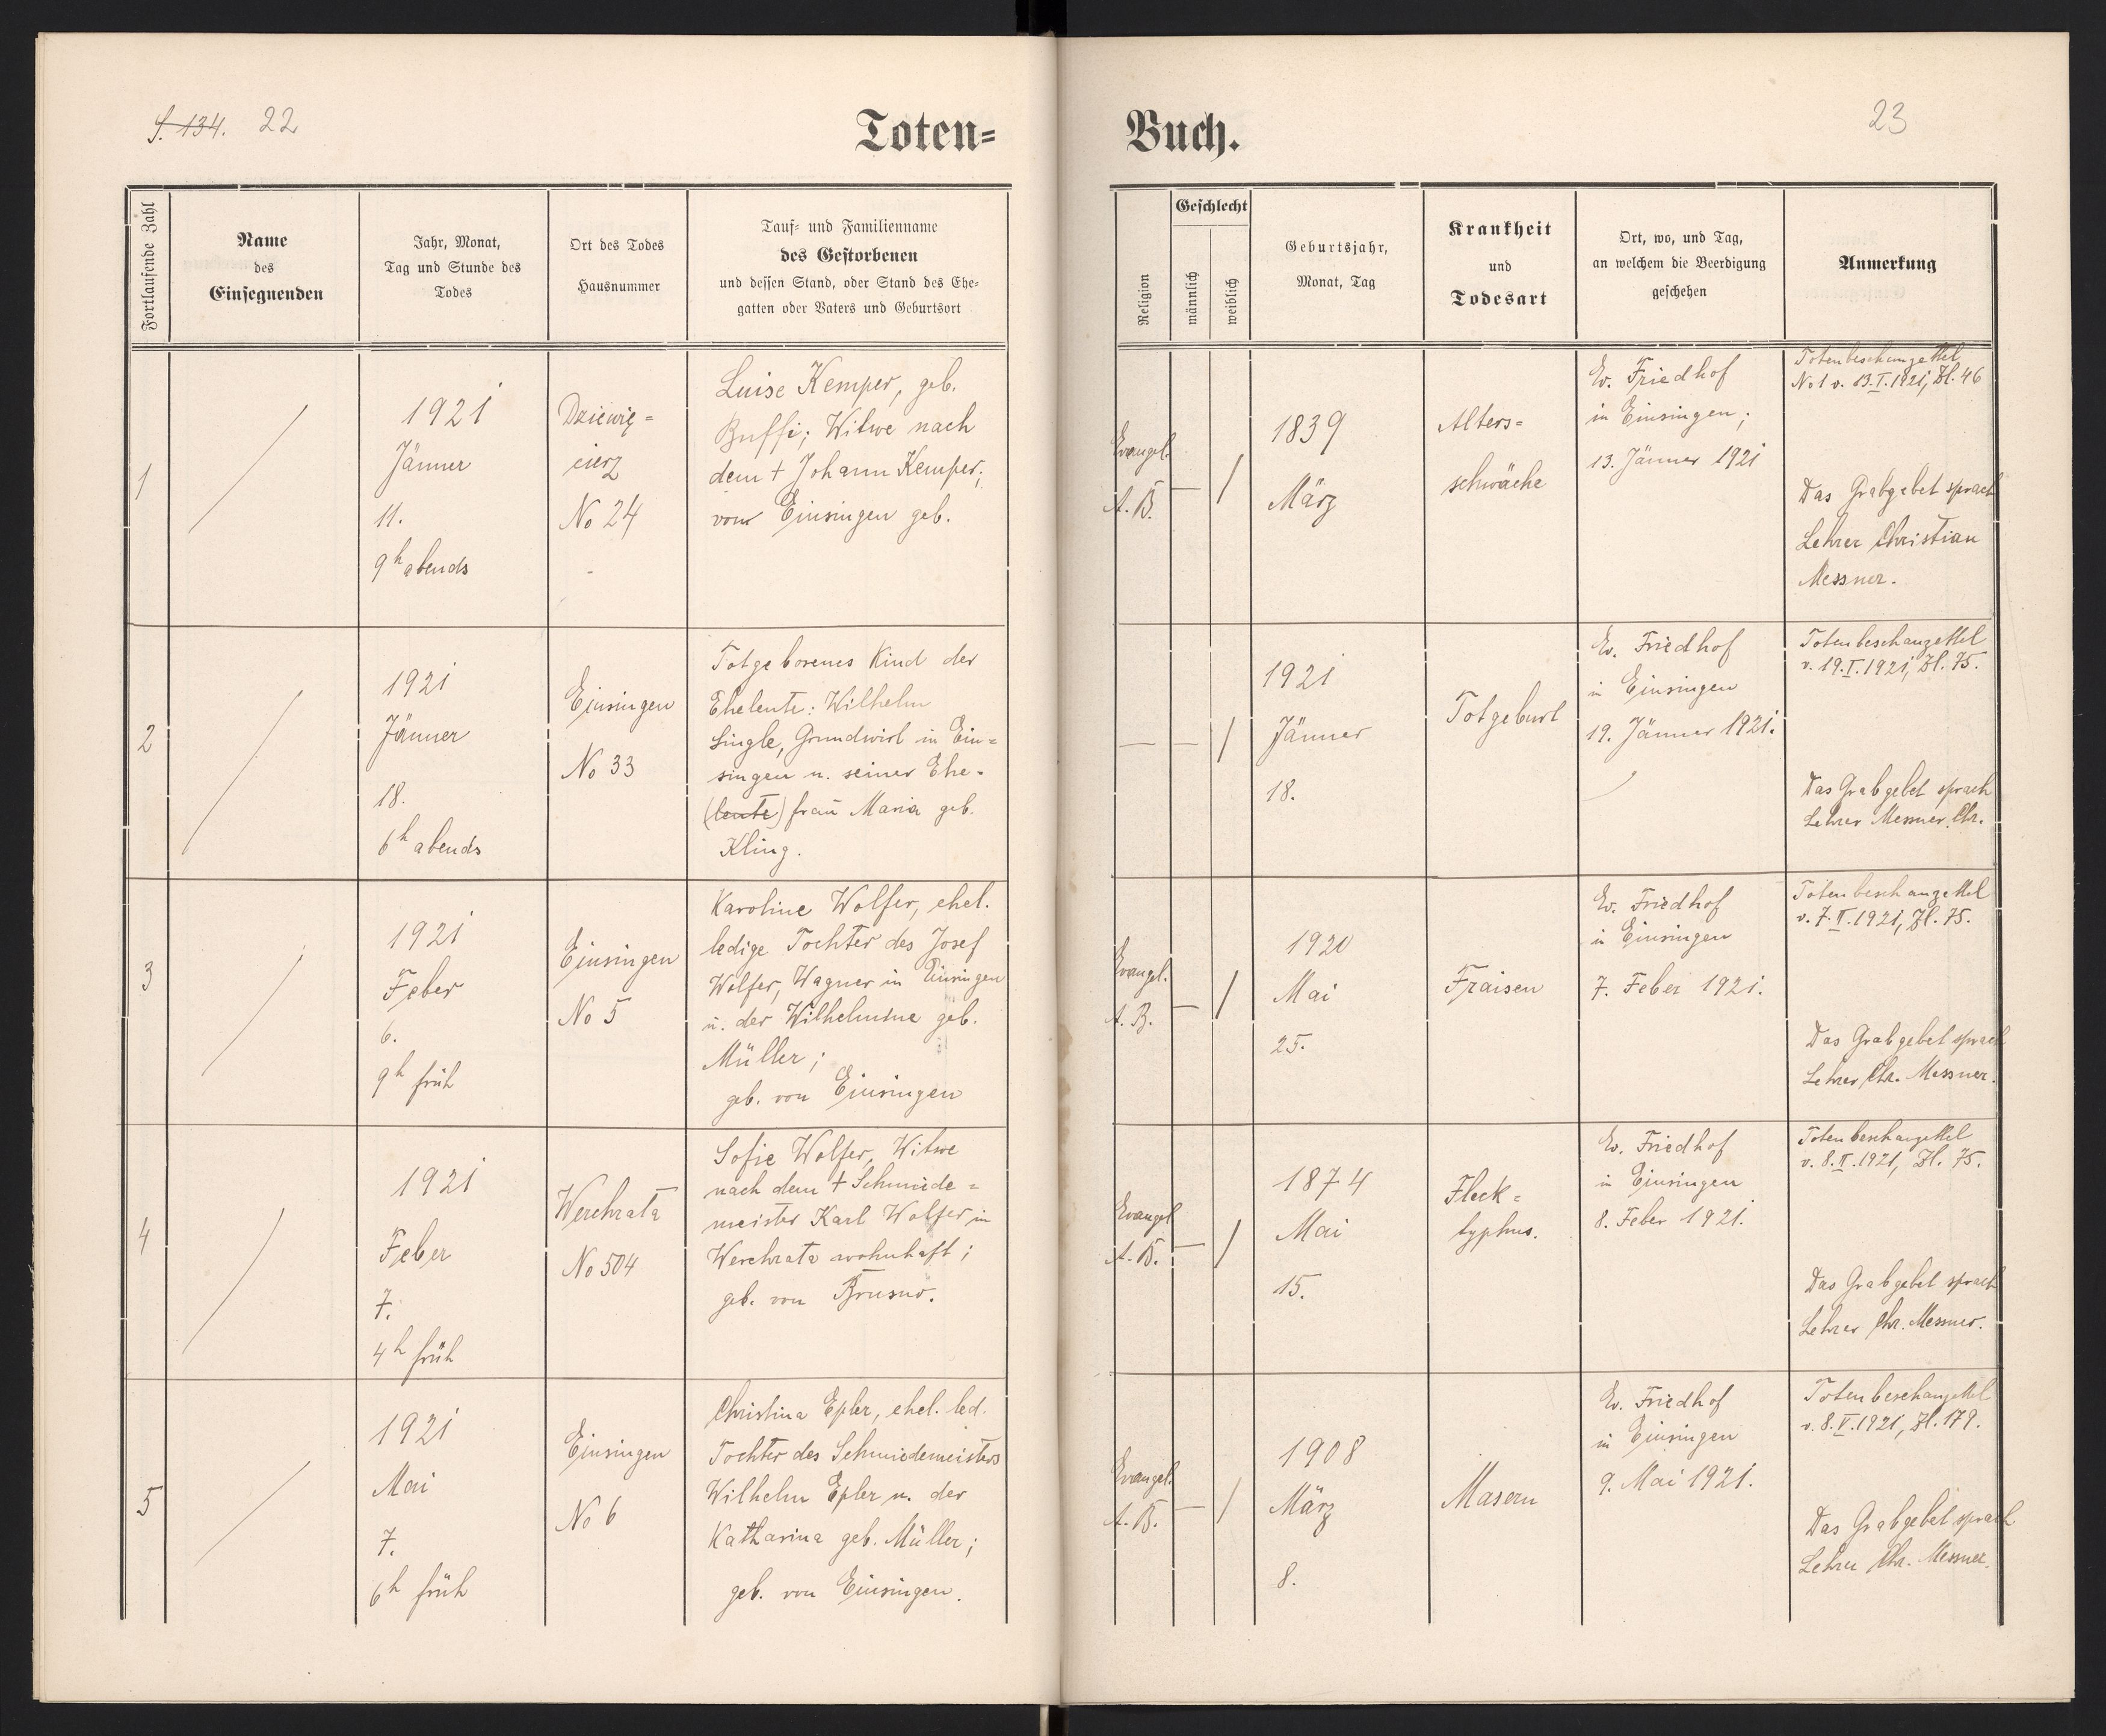 S. 134. 22
Toten=
Fortlaufende Zahl
Name
des
Einsegnenden
Jahr, Monat,
Tag und Stunde des
Todes
Ort des Todes
Hausnummer
Tauf= und Familienname
des Gestorbenen
und dessen Stand, oder Stand des Ehe=
gatten oder Vaters und Geburtsort
1
1921
Jänner
11.
9h abends
Dziewię=
cierz
No 24
Luise Kemper, geb.
Buffi; Witwe nach
dem + Johann Kemper;
von Einsingen geb.
2
1921
Jänner
18.
6h abends
Einsingen
No 33
Totgeborenes Kind der
Eheleute: Wilhelm
Single, Grundwirt in Ein=
singen u. seiner Ehe=
(leute) frau Maria geb.
Kling.
3
1921
Feber
6.
9h früh
Einsingen
No 5
Karoline Wolfer, ehel.
ledige Tochter des Josef
Wolfer, Wagner in Einsingen
u. der Wilhelmine geb.
Müller;
geb. von Einsingen
4
1921
Feber
7.
4h früh
Werchrata
No 504
Sofie Wolfer, Witwe
nach dem + Schmiede=
meister Karl Wolfer in
Werchrata wohnhaft;
geb. von Brusno.
5
1921
Mai
7.
6h früh
Einsingen
No 6
Christina Epler, ehel. led.
Tochter des Schmiedemeisters
Wilhelm Epler u. der
Katharina geb. Müller;
geb. von Einsingen.
Buch.
23
Religion
Geschlecht
männlich
weiblich
Geburtsjahr,
Monat, Tag
Krankheit
und
Todesart
Ort, wo, und Tag,
an welchem die Beerdigung
geschehen
Anmerkung
Evangel.
A. B.
—
/
1839
März
Alters=
schwäche
Ev. Friedhof
in Einsingen;
13. Jänner 1921
Totenbeschauzettel
No 1 v. 13.I.1921, Zl. 46
Das Grabgebet sprach
Lehrer Christian
Messner.
—
—
/
1921
Jänner
18.
Totgeburt
Ev. Friedhof
in Einsingen
19. Jänner 1921.
Totenbeschauzettel
v. 19.I.1921, Zl. 75.
Das Grabgebet sprach
Lehrer Messner Chr.
Evangel.
A. B.
—
/
1920
Mai
25.
Fraisen
Ev. Friedhof
in Einsingen
7. Feber 1921.
Totenbeschauzettel
v. 7.II.1921, Zl. 75.
Das Grabgebet sprach
Lehrer Chr. Messner.
Evangel
A. B.
—
/
1874
Mai
15.
Fleck=
typhus.
Ev. Friedhof
in Einsingen
8. Feber 1921.
Totenbeschauzettel
v. 8.II.1921, Zl. 75.
Das Grabgebet sprach
Lehrer Chr. Messner.
Evangel.
A. B.
—
/
1908
März
8.
Masern
Ev. Friedhof
in Einsingen
9. Mai 1921.
Totenbeschauzettel
v. 8.V.1921, Zl. 179.
Das Grabgebet sprach
Lehrer Chr. Messner.